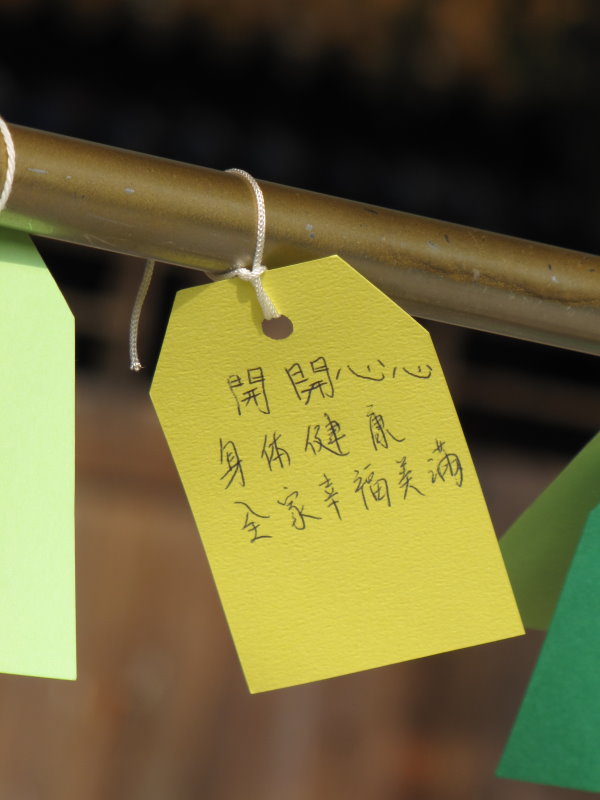 開開心心
身体健康
全家幸福美滿